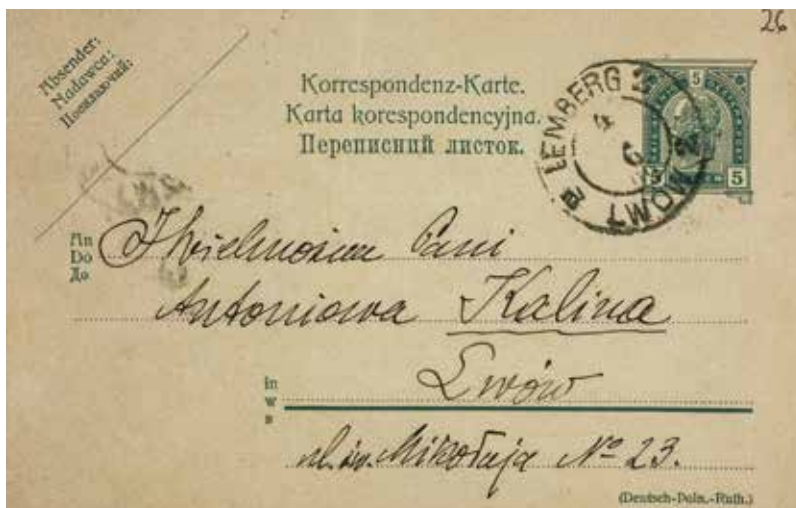 26
Absender:
Nadawca:
Посилаючий:
Korrespondenz-Karte.
Karta korespondencyjna.
Переписний листок.
5
5 5
LEMBERG 2
4 6
LWÓW 2
An
Do
До
JWielmożna Pani
Antoniowa Kalina
in
w
в
Lwów
ul. św. Mikołaja № 23.
(Deutsch-Poln.-Ruth.)